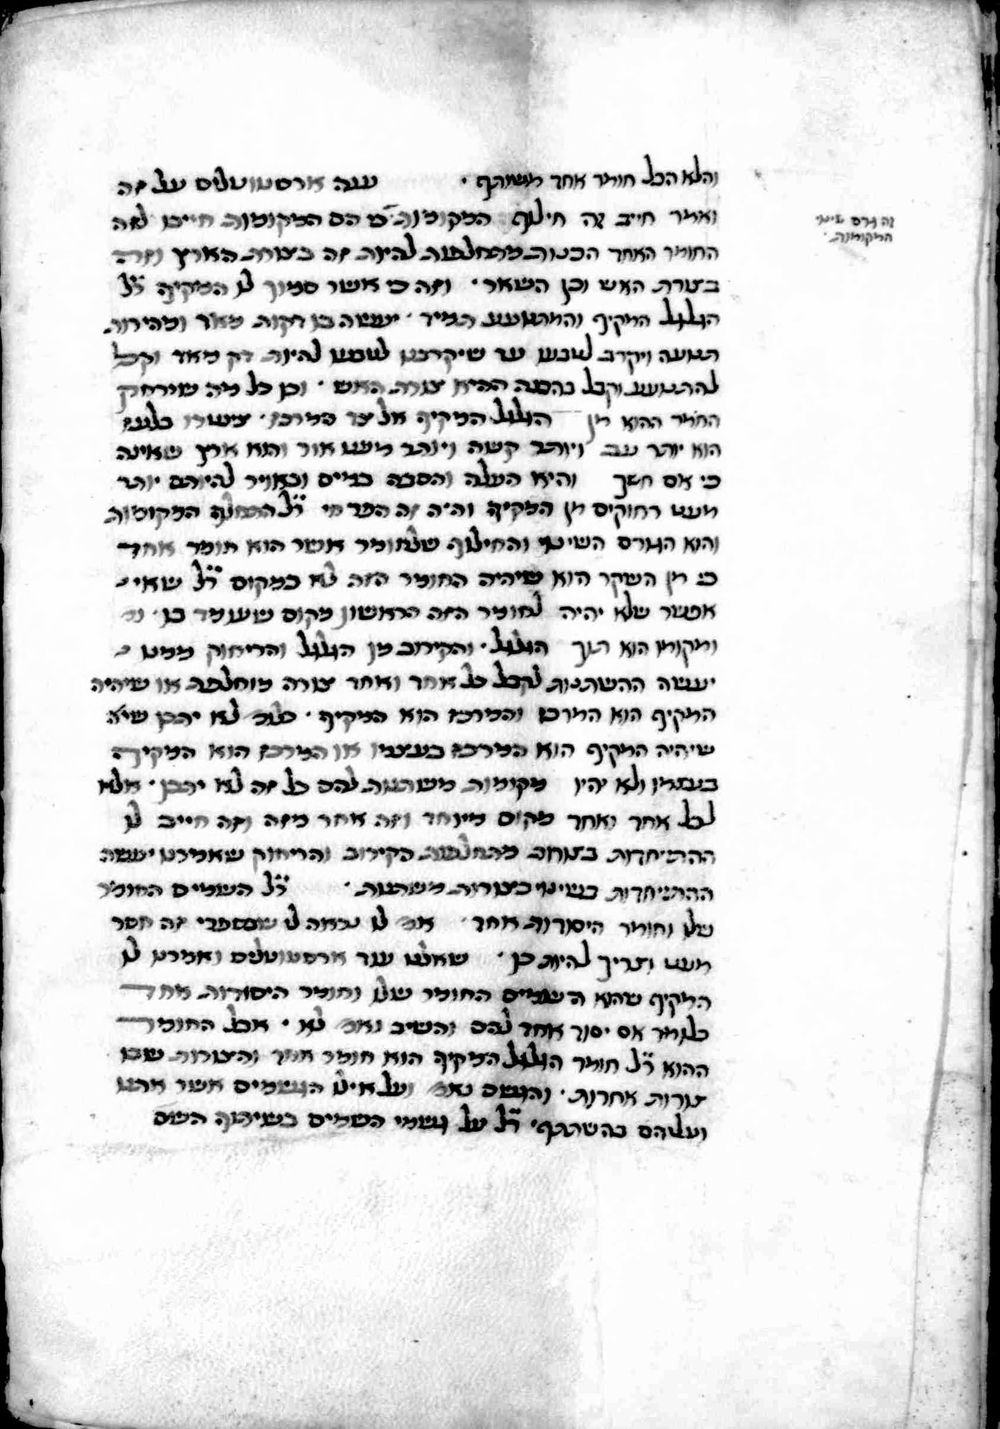 והלא הכל חומר אחד משותף · ענה ארסטוטלוס על זה
ואמר חייב זה חילוף המקומות כי הם המקומות חייבו לזה
החומר האחד הכנות מתחלפות להיות זה בצורת הארץ וזה
בצורת האש וכן השאר · וזה כי אשר סמוך לו המקיף ר״ל
הגלגל המקיף והמתנועע תמיד · יעשה בו דקות מאד ומהירות
תנועה ויקרב לטבעו עד שיקרבנו לטבעו להיות דק מאד וקל
להתנועע וקבל בהכנה ההיא צורת האש · וכן כל מה שירחק
החומר ההוא מן הגלגל המקיף אל צד המרכז ·
הוא יותר עב ויותר קשה ויותר מעט אור והוא ארץ שאינה
כי אם חשך והיא העלה והסבה במים ובאויר להיותם יותר
מעט רחוקים מן המקיף והיה זה הכרחי ר״ל התחלף המקומות
והוא הגורם השינוי והחילוף שלחומר אשר הוא חומר אחד
כי מן השקר הוא שיהיה החומר הזה לא במקום ר״ל שאי
אפשר שלא יהיה לחומר הזה הראשון מקום שעומד בו ·
ומקומו הוא תוך הגלגל · והקירוב מן הגלגל והריחוק ממנו
יעשה ההשתנות לקבל כל אחד ואחד צורה מוחלפת או שיהיה
המקיף הוא המרכז והמרכז הוא המקיף · כלומ׳ לא יתכן שיא
שיהיה המקיף הוא המרכז בעצמו או המרכז הוא המקיף
בעצמו ולא יהיו מקומות משתנות להם כל זה לא יתכן · אלא
לכל אחד ואחד מקום מיוחד וזה אחר מזה וזה חייב לו
ההתיחדות בצורות מתחלפות הקירוב והריחוק שאמרנו יעשה
ההתיחדות בשינוי בצורות משתנות · ר״ל השמים החומר
שלו וחומר היסודות אחד · אמ׳ לו נראה לו שבספרי זה חסר
מעט וצריך להיות כן · שאלנו עוד ארסטוטלוס ואמרנו לו
המקיף שהוא השמים החומר שלו וחומר היסודות אחד
כלומר אם יסוד אחד להם והשיב ואמ׳ לא · אבל החומר
ההוא ר״ל חומר הגלגל המקיף הוא חומר אחר והצורות שבו
צורות אחרות · והגשם נאמ׳ ועל אילו הגשמים אשר אתנו
ועליהם בהשתתף · ר״ל על גשמי השמים בשיתוף השם
זה גורם שינוי
המקומות ·